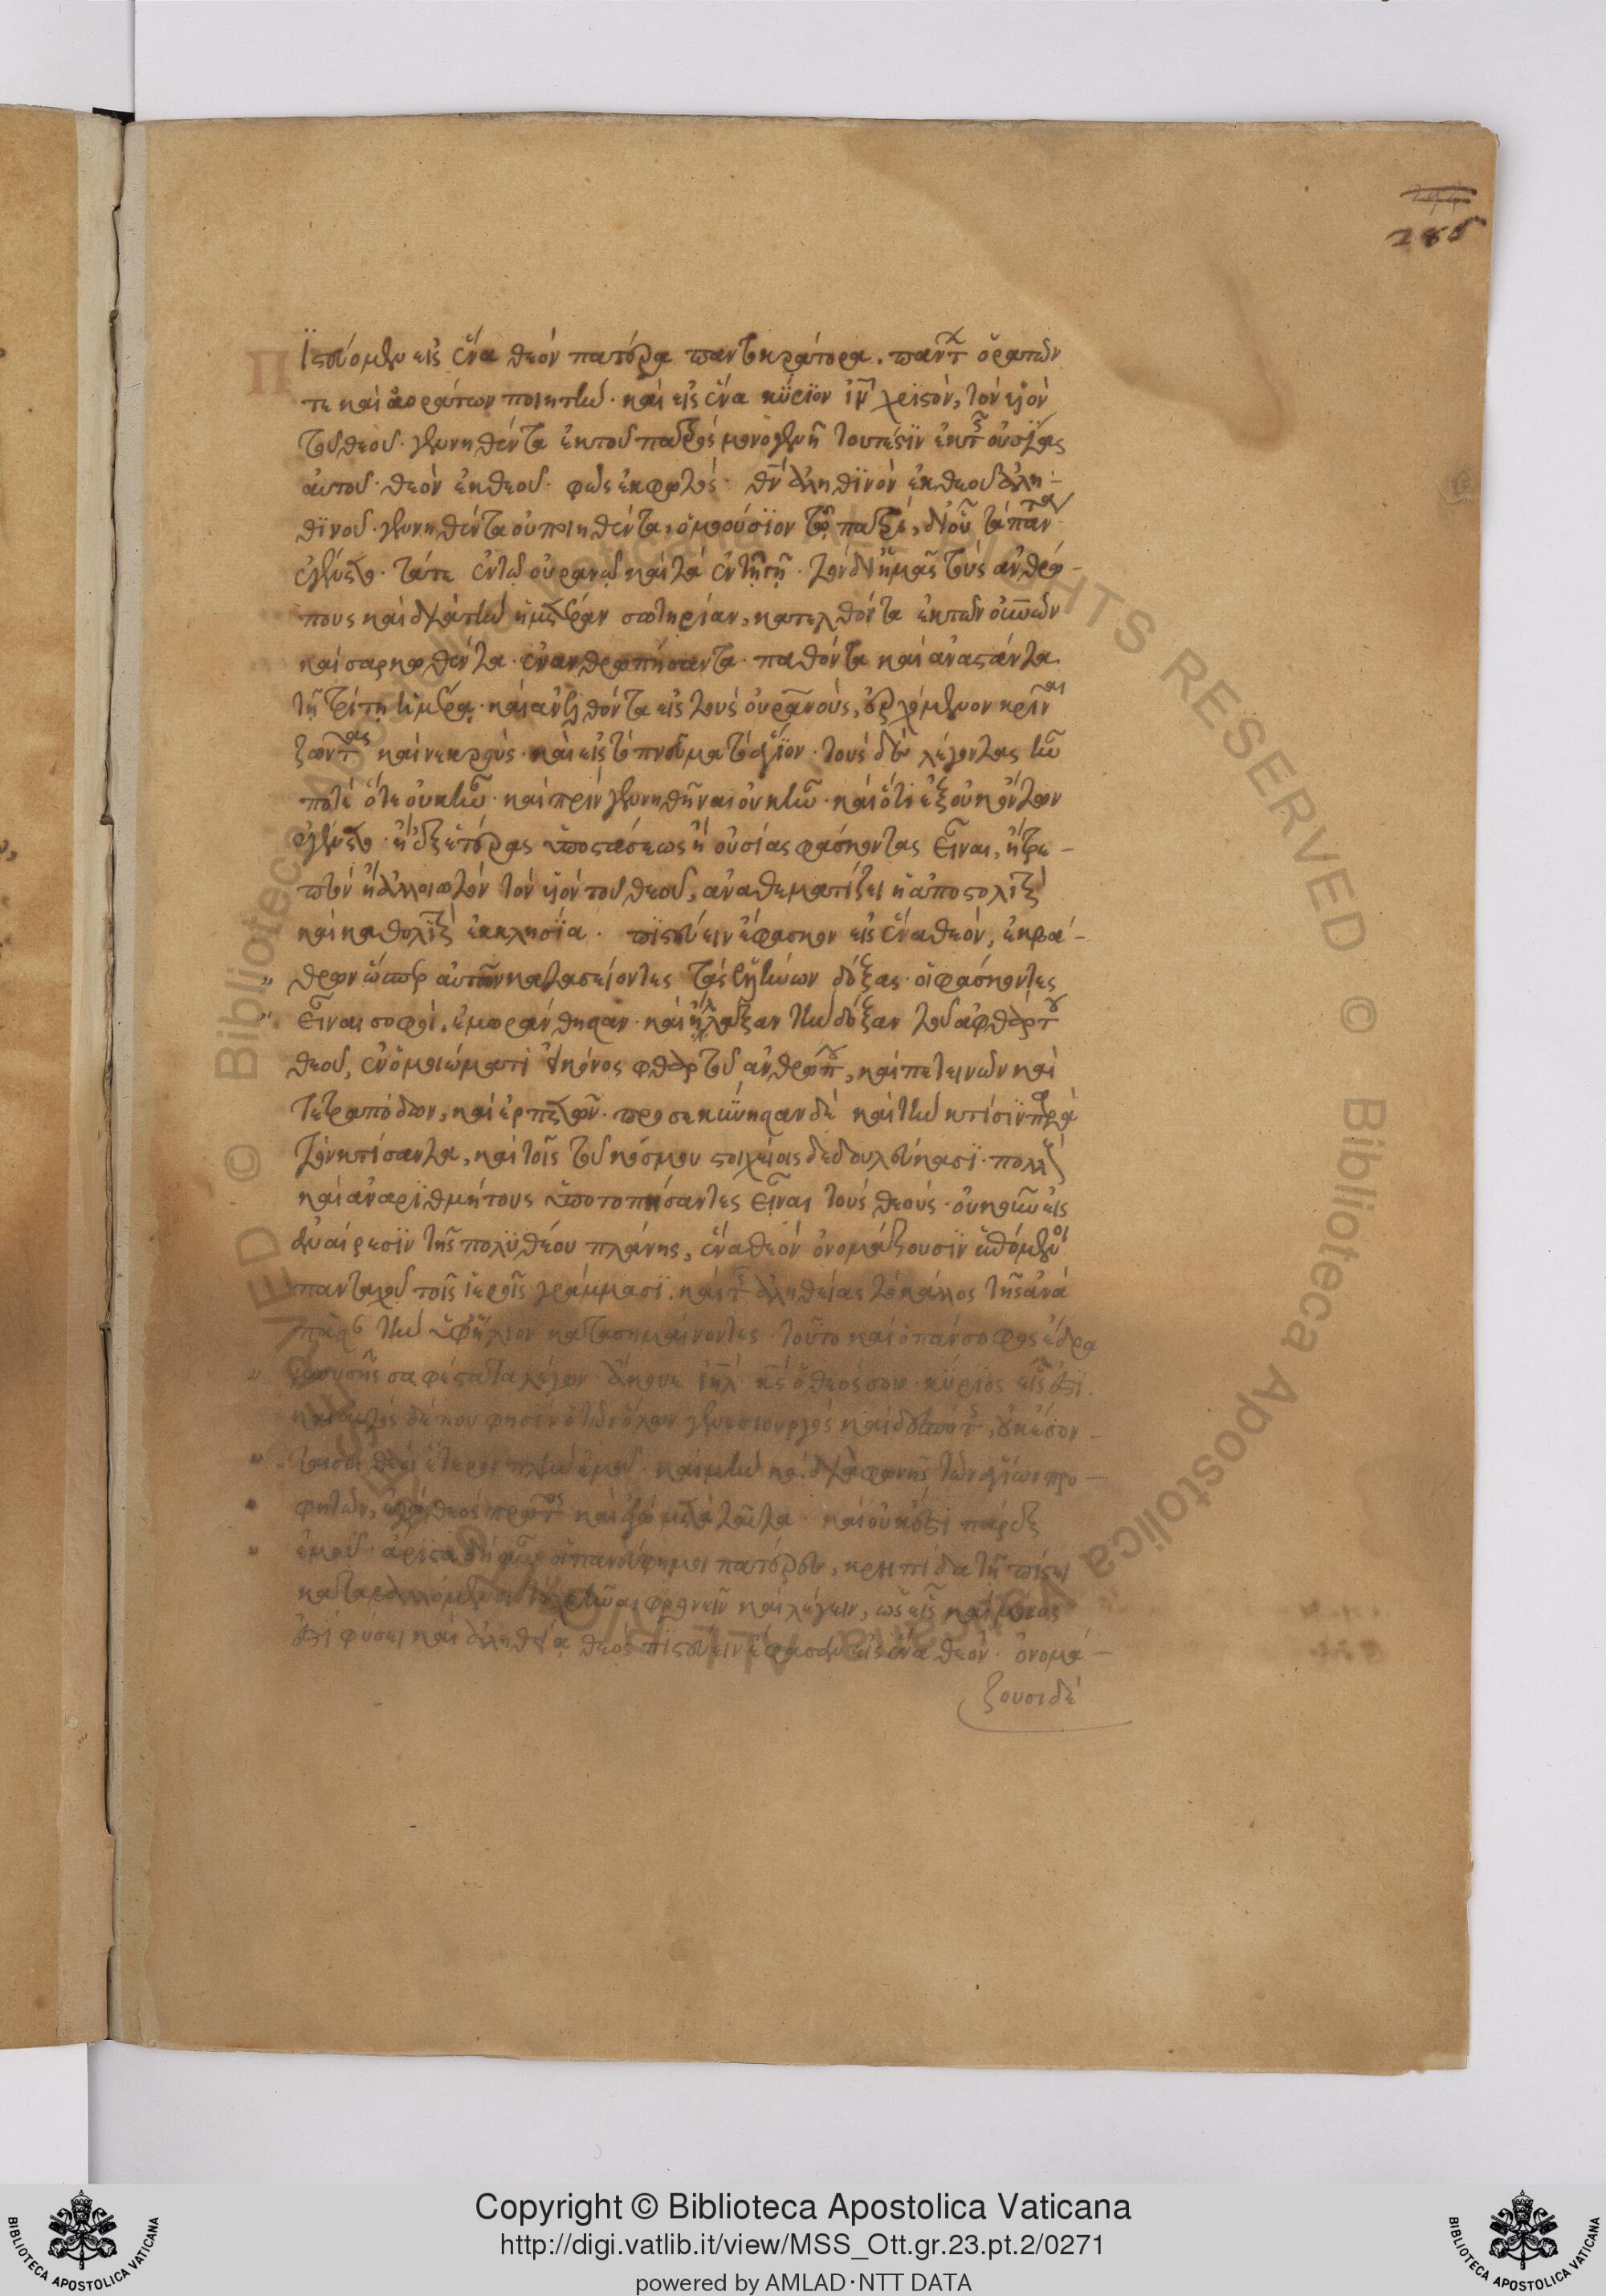 285
Πϊστεύομεν εἰς ἕνα θεὸν πατέρα παντοκράτορα. πάντ(ων) ὁρατῶν
τε καὶ ἀοράτων ποιητήν· καὶ εἰς ἕνα κύριον ἰν χριστὸν, τὸν υἱὸν
τοῦ θεοῦ· γεννηθέντα ἐκ τοῦ πατρὸς μονογενῆ τουτέστιν ἐκ τῆς οὐσίας
αὐτοῦ· θεὸν ἐκ θεοῦ· φῶς ἐκ φωτός· θν ἀληθινὸν ἐκ θεοῦ ἀλη-
θινοῦ· γεννηθέντα οὐ ποιηθέντα, ὁμοούσιον τῷ πατρί, δι' οὗ τὰ πάντα
ἐγένετο· τά τε ἐν τῷ οὐρανῷ καὶ τὰ ἐν τῇ γῇ· τὸν δι' ἡμᾶς τοὺς ἀνθρώ-
πους καὶ διὰ τὴν ἡμετέραν σωτηρίαν, κατελθόντα ἐκ τῶν οὐνῶν
καὶ σαρκωθέντα· ἐνανθρωπήσαντα· παθόντα καὶ ἀναστάντα
τῇ τρίτῃ ἡμέρᾳ· καὶ ἀνελθόντα εἰς τοὺς οὐρανούς, ἐρχόμενον κρῖναι
ζῶντας καὶ νεκρούς· καὶ εἰς τὸ πνεῦμα τὸ ἅγιον· τοὺς δὲ λέγοντας ἦν
ποτὲ ὅτε οὐκ ἦν· καὶ πρὶν γεννηθῆναι οὐκ ἦν· καὶ ὅτι ἐξ οὐκ ὄντων
ἐγένετο· ἢ ἐξ ἑτέρας ὑποστάσεως ἢ οὐσίας φάσκοντας εἶναι, ἢ τρε-
πτὸν ἢ ἀλλοιωτὸν τὸν υἱὸν τοῦ θεοῦ, ἀναθεματίζει ἡ ἀποστολικὴ
καὶ καθολικὴ ἐκκλησία· πιστεύειν ἔφασκον εἰς ἕνα θεόν, ἐκ βά-
θρων ὥσπερ αὐτῶν κατασείοντες τὰς ἑλλήνων δόξας· οἳ φάσκοντες
εἶναι σοφοὶ, ἐμωράνθησαν· καὶ ἤλλαξαν τὴν δόξαν τοῦ ἀφθάρτου
θεοῦ, ἐν ὁμοιώματι εἰκόνος φθαρτοῦ ἀνθρώπου, καὶ πετεινῶν καὶ
τετραπόδων, καὶ ἑρπετῶν· προσεκύνησαν δὲ καὶ τὴν κτίσιν παρὰ
τὸν κτίσαντα, καὶ τοῖς τοῦ κόσμου στοιχείοις δεδουλεύκασι· πολλοὺς
καὶ ἀναριθμήτους ὑποτοπήσαντες εἶναι τοὺς θεούς· οὐκοῦν εἰς
ἀναίρεσιν τῆς πολυθέου πλάνης, ἕνα θεὸν ὀνομάζουσιν ἑπόμενοι
πανταχοῦ τοῖς ἱεροῖς γράμμασι· καὶ τῆς ἀληθείας τὸ κάλλος τοῖς ἀνὰ
πᾶσαν τὴν ὑφήλιον κατασημαίνοντες· τοῦτο καὶ ὁ πάνσοφος ἔδρα
μωυσῆς σαφέστατα λέγων· ἄκουε ἰηλ κς ὁ θεός σου κύριος εἷς ἐστι·
καὶ αὐτὸς δέ που φησὶν ὁ τῶν ὅλων γενεσιουργὸς καὶ δεσπότης, οὐκ ἔσον-
ται σοι θεοὶ ἕτεροι πλὴν ἐμοῦ· καὶ μὴν καὶ διὰ φωνῆς τῶν ἁγίων προ-
φητῶν, ἐγὼ θεὸς πρῶτος καὶ ἐγὼ μετὰ ταῦτα· καὶ οὐκ ἔστι πάρεξ
ἐμοῦ· ἄριστα δὴ οὖν οἱ πανεύφημοι πατέρες, κρηπῖδα τῇ πίστει
καταβαλλόμενοι τὸ χρῆναι φρονεῖν καὶ λέγειν, ὡς εἷς καὶ μόνος
ἐστὶ φύσει καὶ ἀληθείᾳ θεὸς πιστεύειν ἔφασαν εἰς ἕνα θεόν· ὀνομά-
ζουσι δὲ
Copyright © Biblioteca Apostolica Vaticana
http://digi.vatlib.it/view/MSS_Ott.gr.23.pt.2/0271
powered by AMLAD·NTT DATA
BIBLIOTECA APOSTOLICA VATICANA
BIBLIOTECA APOSTOLICA VATICANA